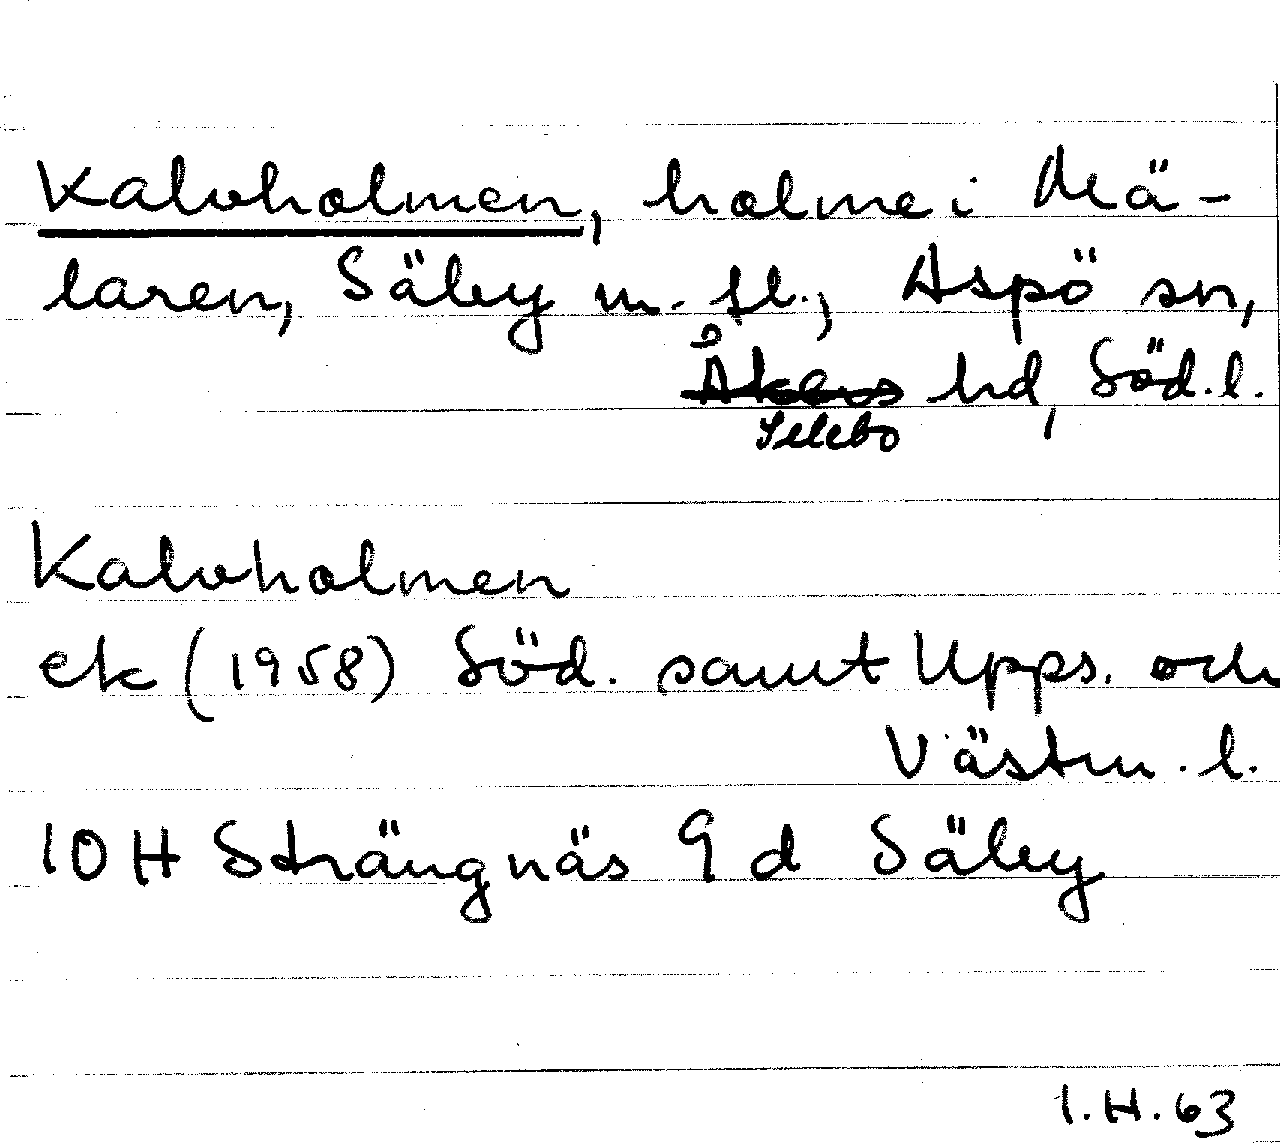 Kalvholmen, holme i Mä-
laren, Säby m. fl., Aspö sn,
Åkers hd, Söd. l.
Selebo
Kalvholmen
ek (1958) Söd. samt Upps. och
Västm. l.
10 H Strängnäs 9 d Säby
I.H. 63